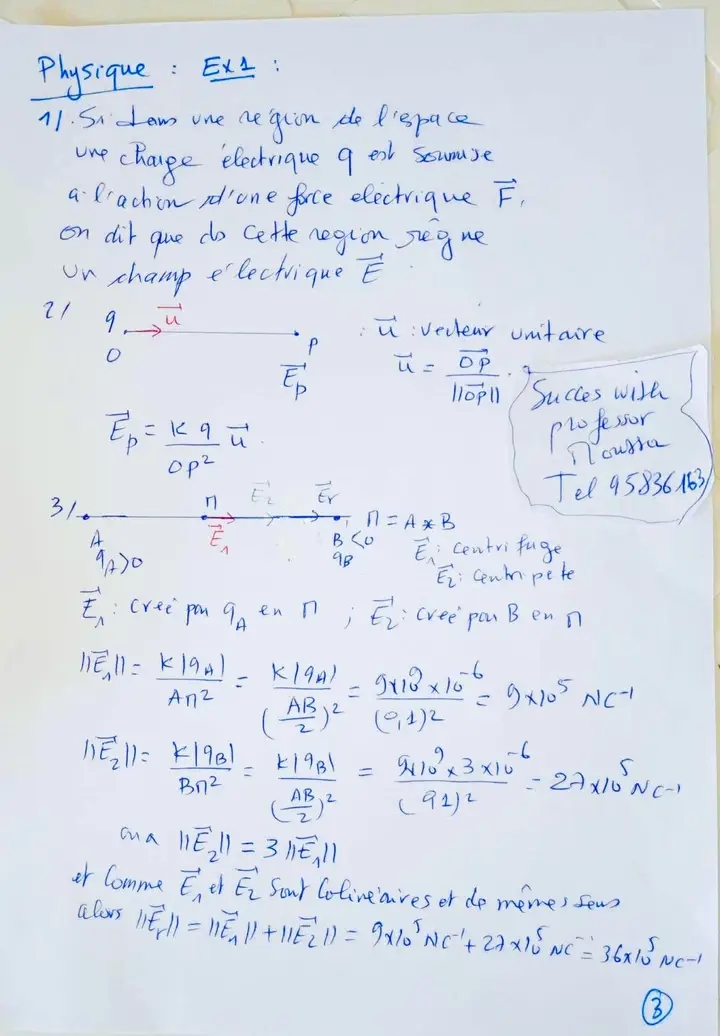 Physique : Ex1 :
1/. Si dans une région de l'espace
une charge électrique q est soumise
a l'action d'une force electrique F⃗,
on dit que ds cette region règne
un champ électrique E⃗
2/ q u⃗ : u⃗ : vecteur unitaire
O P u⃗ = OP⃗ / ||OP⃗||
E⃗p
E⃗p = K q / OP² u⃗.
Succes with
professor
Moussa
Tel 95836163
3/ M E⃗2 E⃗r M = A * B
A E⃗1 B <0 E⃗1: centrifuge
qA>0 qB E⃗2: centripete
E⃗1 : creé par qA en M ; E⃗2: creé par B en M
||E⃗1|| = K|qA| / AM² = K|qA| / (AB/2)² = 9x10⁹ x 10⁻⁶ / (0,1)² = 9x10⁵ NC⁻¹
||E⃗2|| = K|qB| / BM² = K|qB| / (AB/2)² = 9x10⁹ x 3x10⁻⁶ / (0,1)² = 27x10⁵ NC⁻¹
on a ||E⃗2|| = 3 ||E⃗1||
et comme E⃗1 et E⃗2 sont colinéaires et de mêmes sens
alors ||E⃗r|| = ||E⃗1|| + ||E⃗2|| = 9x10⁵ NC⁻¹ + 27x10⁵ NC⁻¹ = 36x10⁵ NC⁻¹
3